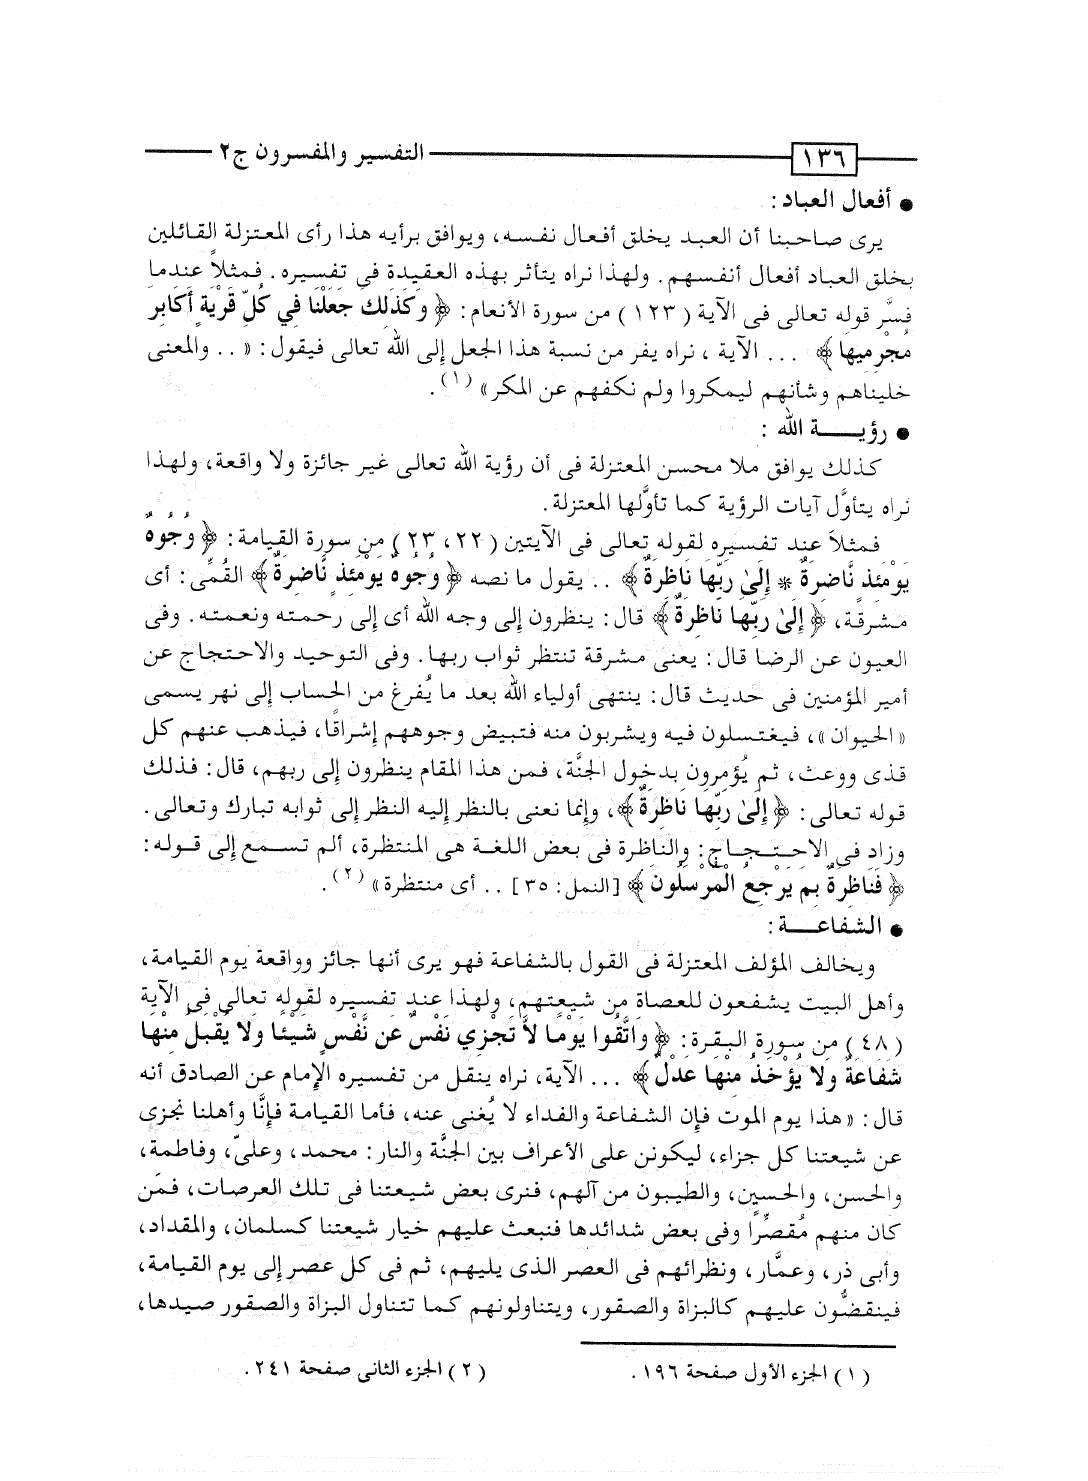 ١٣٦ التفسير والمفسرون ج٢
● أفعال العباد:
يرى صاحبنا أن العبد يخلق أفعال نفسه، ويوافق برأيه هذا رأى المعتزلة القائلين
بخلق العباد أفعال أنفسهم. ولهذا نراه يتأثر بهذه العقيدة فى تفسيره. فمثلاً عندما
فسَّر قوله تعالى فى الآية (١٢٣) من سورة الأنعام: ﴿وَكَذَلِكَ جَعَلْنَا فِي كُلِّ قَرْيَةٍ أَكَابِرَ
مُجْرِمِيهَا﴾ ... الآية ، نراه يفر من نسبة هذا الجعل إلى الله تعالى فيقول: «.. والمعنى
خليناهم وشأنهم ليمكروا ولم نكفهم عن المكر» (١).
● رؤيـــة الله :
كذلك يوافق ملا محسن المعتزلة فى أن رؤية الله تعالى غير جائزة ولا واقعة، ولهذا
نراه يتأوَّل آيات الرؤية كما تأوَّلها المعتزلة.
فمثلاً عند تفسيره لقوله تعالى فى الآيتين (٢٢، ٢٣) من سورة القيامة: ﴿وُجُوهٌ
يَوْمَئِذٍ نَّاضِرَةٌ * إِلَىٰ رَبِّهَا نَاظِرَةٌ﴾ .. يقول ما نصه ﴿وُجُوهٌ يَوْمَئِذٍ نَّاضِرَةٌ﴾ القُمِّى: أى
مشرقة، ﴿إِلَىٰ رَبِّهَا نَاظِرَةٌ﴾ قال: ينظرون إلى وجه الله أى إلى رحمته ونعمته. وفى
العيون عن الرضا قال: يعنى مشرقة تنتظر ثواب ربها. وفى التوحيد والاحتجاج عن
أمير المؤمنين فى حديث قال: ينتهى أولياء الله بعد ما يُفرغ من الحساب إلى نهر يسمى
«الحيوان»، فيغتسلون فيه ويشربون منه فتبيض وجوههم إشراقًا، فيذهب عنهم كل
قذى ووعث، ثم يُؤمرون بدخول الجنَّة، فمن هذا المقام ينظرون إلى ربهم، قال: فذلك
قوله تعالى: ﴿إِلَىٰ رَبِّهَا نَاظِرَةٌ﴾، وإنما نعنى بالنظر إليه النظر إلى ثوابه تبارك وتعالى.
وزاد فى الاحتجاج: والناظرة فى بعض اللغة هى المنتظرة، ألم تسمع إلى قوله:
﴿فَنَاظِرَةٌ بِمَ يَرْجِعُ الْمُرْسَلُونَ﴾ [النمل: ٣٥] .. أى منتظرة» (٢).
● الشفاعـــة:
ويخالف المؤلف المعتزلة فى القول بالشفاعة فهو يرى أنها جائز وواقعة يوم القيامة،
وأهل البيت يشفعون للعصاة من شيعتهم، ولهذا عند تفسيره لقوله تعالى فى الآية
(٤٨) من سورة البقرة: ﴿وَاتَّقُوا يَوْمًا لاَّ تَجْزِي نَفْسٌ عَن نَّفْسٍ شَيْئًا وَلا يُقْبَلُ مِنْهَا
شَفَاعَةٌ وَلا يُؤْخَذُ مِنْهَا عَدْلٌ﴾ ... الآية، نراه ينقل من تفسيره الإمام عن الصادق أنه
قال: «هذا يوم الموت فإن الشفاعة والفداء لا يُغنى عنه، فأما القيامة فإنَّا وأهلنا نجزى
عن شيعتنا كل جزاء، ليكونن على الأعراف بين الجنَّة والنار: محمد، وعلىّ، وفاطمة،
والحسن، والحسين، والطيبون من آلهم، فنرى بعض شيعتنا فى تلك العرصات، فمَن
كان منهم مُقصِّرا وفى بعض شدائدها فنبعث عليهم خيار شيعتنا كسلمان، والمقداد،
وأبى ذر، وعمَّار، ونظرائهم فى العصر الذى يليهم، ثم فى كل عصر إلى يوم القيامة،
فينقضُّون عليهم كالبزاة والصقور، ويتناولونهم كما تتناول البزاة والصقور صيدها،
(١) الجزء الأول صفحة ١٩٦. (٢) الجزء الثانى صفحة ٢٤١.